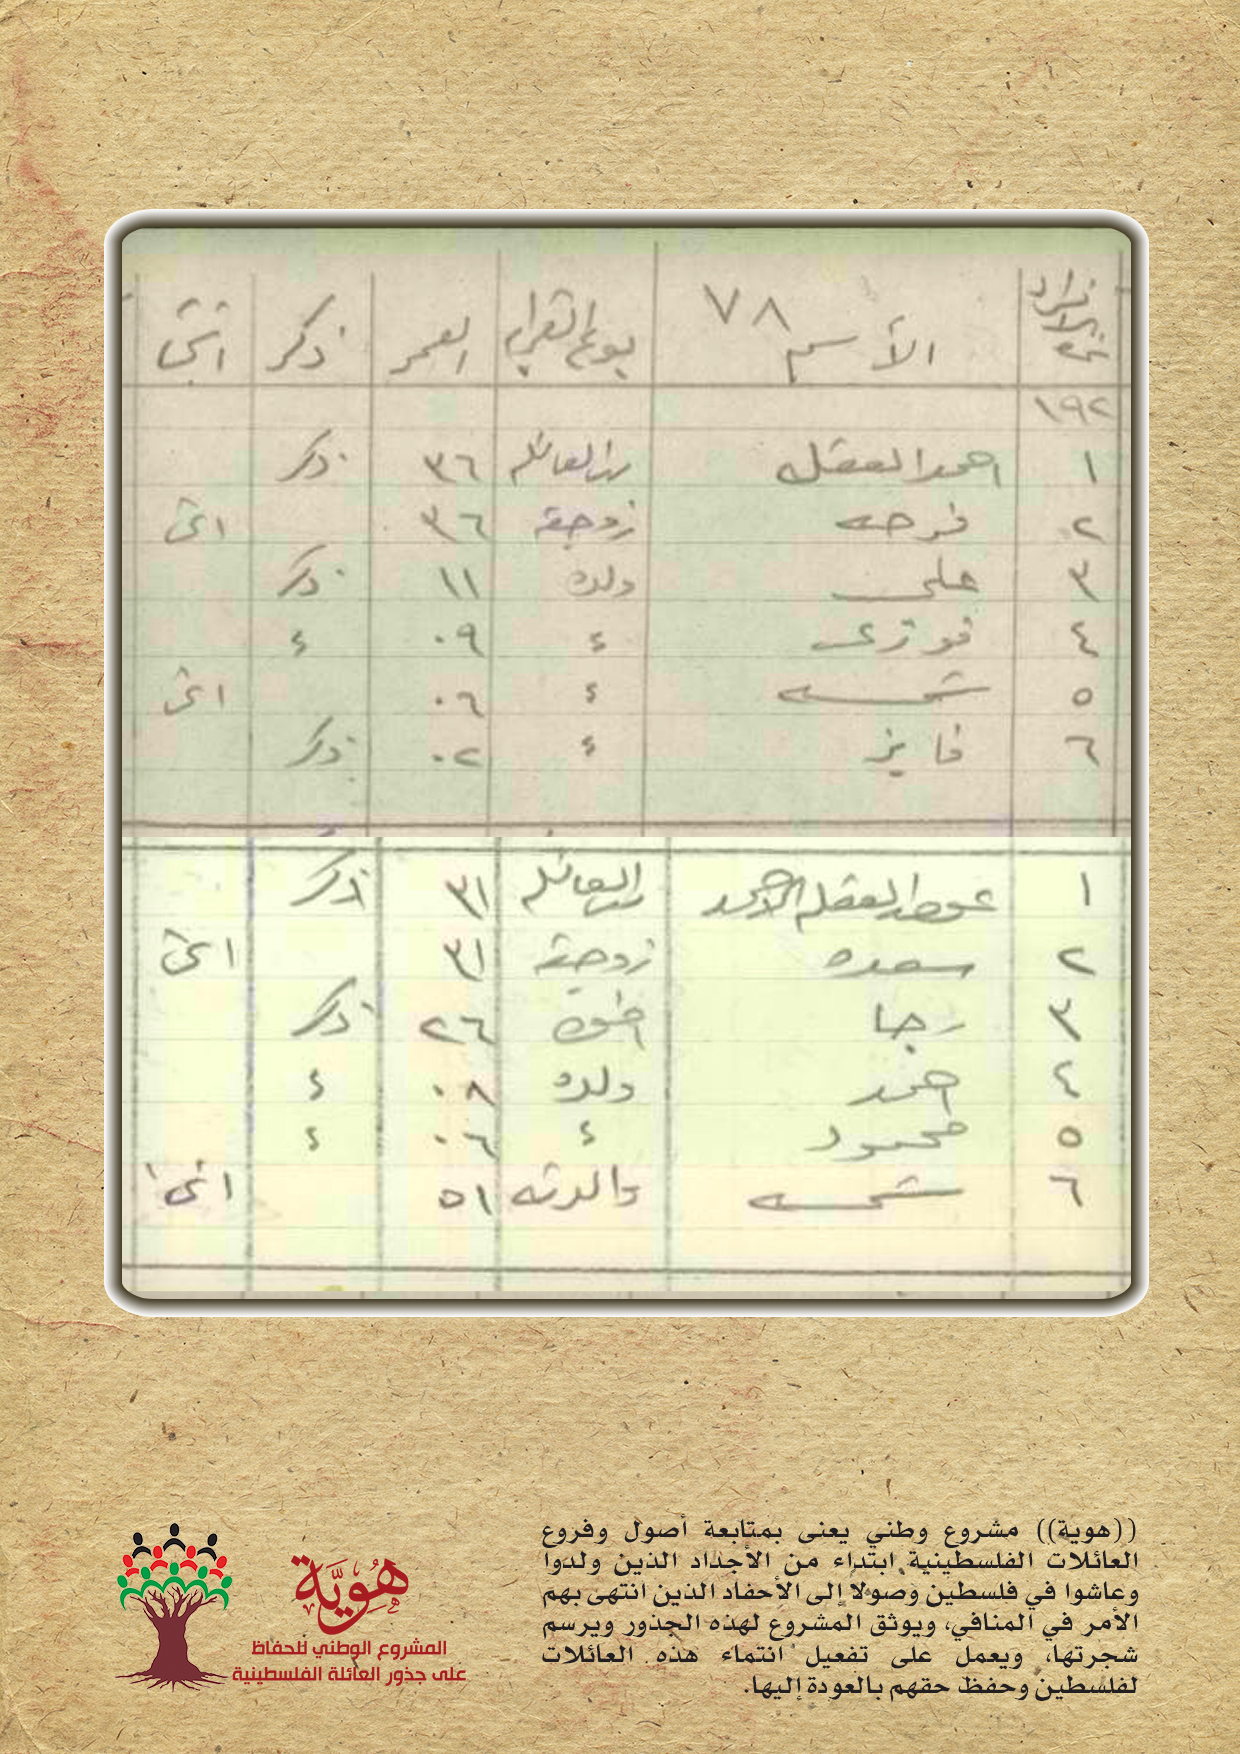 الأسم ٧٨ العمر ذكر انثى
١٩٢
١ احمد العقله رب العائله ٣٦ ذكر
٢ فرحه زوجته ٣٦ انثى
٣ علي ولده ١١ ذكر
٤ فوزي ٤ ٠٩ ٤
٥ شمسه ٤ ٠٦ انثى
٦ فايز ٤ ٠٢ ذكر
١ عوض العقله الاحمد رب العائله ٣١ ذكر
٢ سعده زوجته ٣١ انثى
٣ رجا اخوه ٢٦ ذكر
٤ احمد ولده ٠٨ ٤
٥ محمود ٤ ٠٦ ٤
٦ شمسه والدته ٥١ انثى
((هوية)) مشروع وطني يعنى بمتابعة أصول وفروع
العائلات الفلسطينية ابتداء من الأجداد الذين ولدوا
وعاشوا في فلسطين وصولا إلى الأحفاد الذين انتهى بهم
الأمر في المنافي، ويوثق المشروع لهذه الجذور ويرسم
شجرتها، ويعمل على تفعيل انتماء هذه العائلات
لفلسطين وحفظ حقهم بالعودة إليها.
هُوِيَّة
المشروع الوطني للحفاظ
على جذور العائلة الفلسطينية